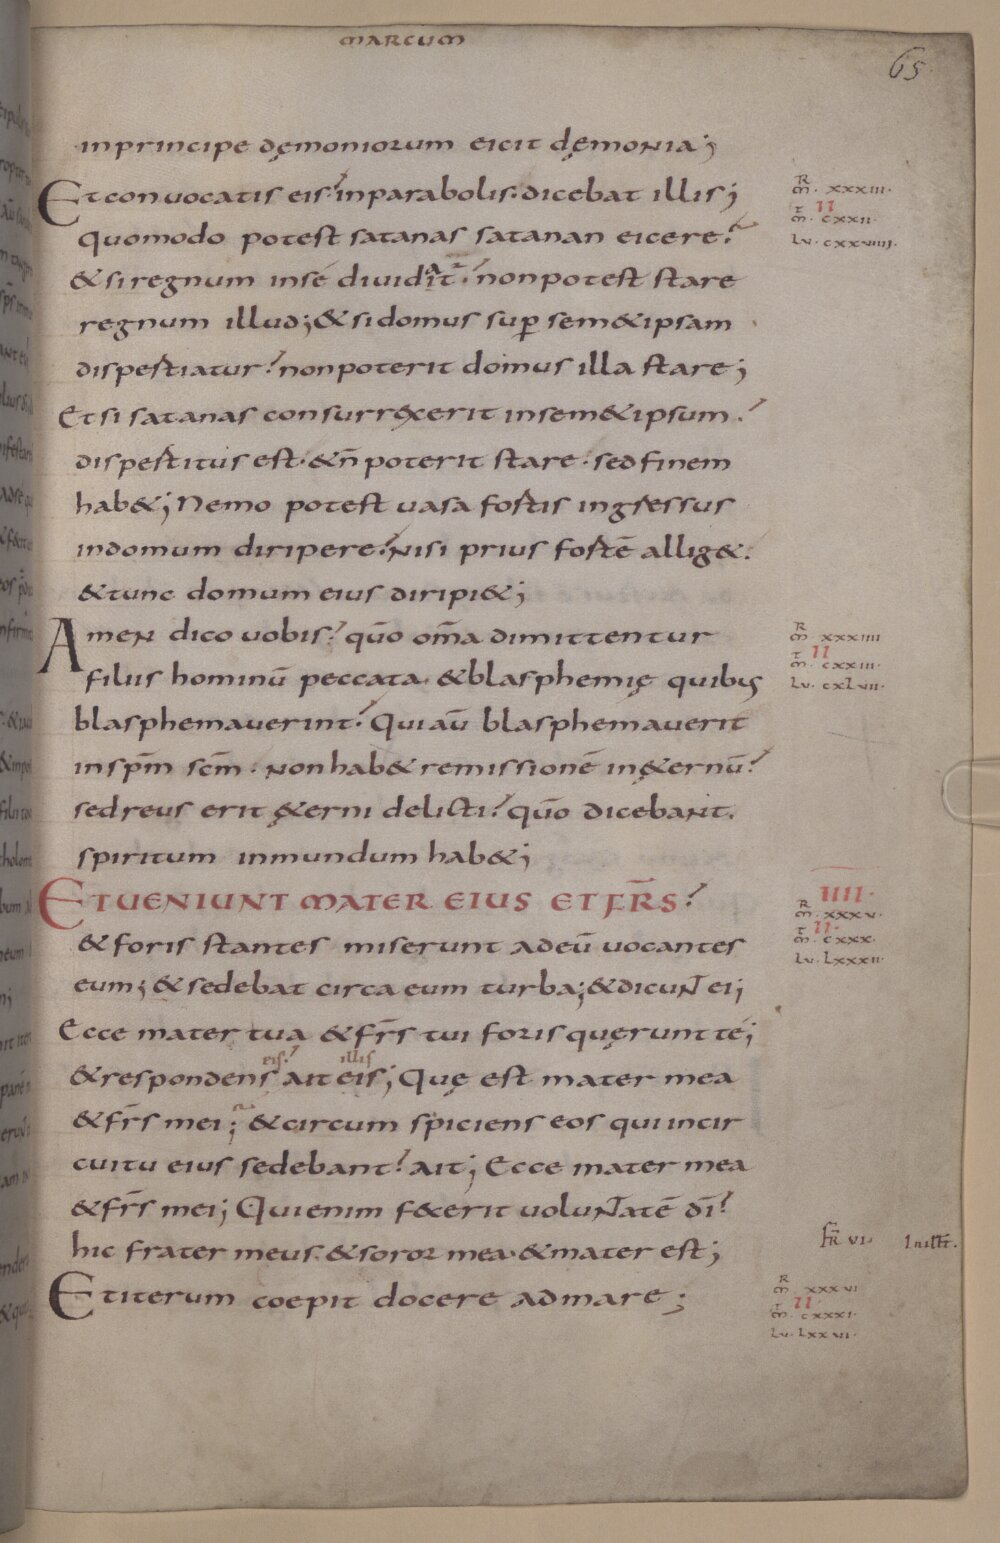 MARCUM
65
in principe dęmoniorum eicit dęmonia;
Et convocatis eis. in parabolis. dicebat illis;
quomodo potest satanas satanan eicere?
& si regnum in sé dividat. non potest stare
regnum illud; & si domus sup sem&ipsam
dispestiatur. non poterit domus illa stare;
Et si satanas consurrexerit in sem&ipsum.
dispestitus est. & n̄ poterit stare. sed finem
hab&; Nemo potest vasa fostis ingsessus
in domum diripere. Nisi prius fostē allig&.
& tunc domum eius diripi&;
Amen dico vobis. qūo om̄a dimittentur
filiis hominū peccata. & blasphemię quibus
blasphemaverint. Qui aū blasphemaverit
in spm̄ scm̄. non hab& remissionē in ę&ernū.
sed reus erit ę&erni delicti. qūo dicebant.
spiritum inmundum hab&;
ET VENIUNT MATER EIUS ET FR̄S.
& foris stantes miserunt ad eū vocantes
eum; & sedebat circa eum turba; & dicunt ei;
Ecce mater tua & fr̄s tui foris quęrunt té;
eis. illis
& respondens ait eis; Quę est mater mea
& fr̄s mei; & circum spiciens eos qui in cir
cuitu eius sedebant. ait; Ecce mater mea
& fr̄s mei; Qui enim fecerit voluntatē dī.
hic frater meus. & soror mea. & mater est;
Et iterum coepit docere ad mare;
R
m. xxxiii.
II
m. cxxii.
Lu. cxxviiii.
R
m. xxxiiii
II
m. cxxiii.
Lu. cxLvii.
IIII.
R
m. xxxv.
II.
m. cxxx.
Lu. Lxxxii
R
m. xxxvi
II.
m. cxxxi.
Lu. Lxxvi.